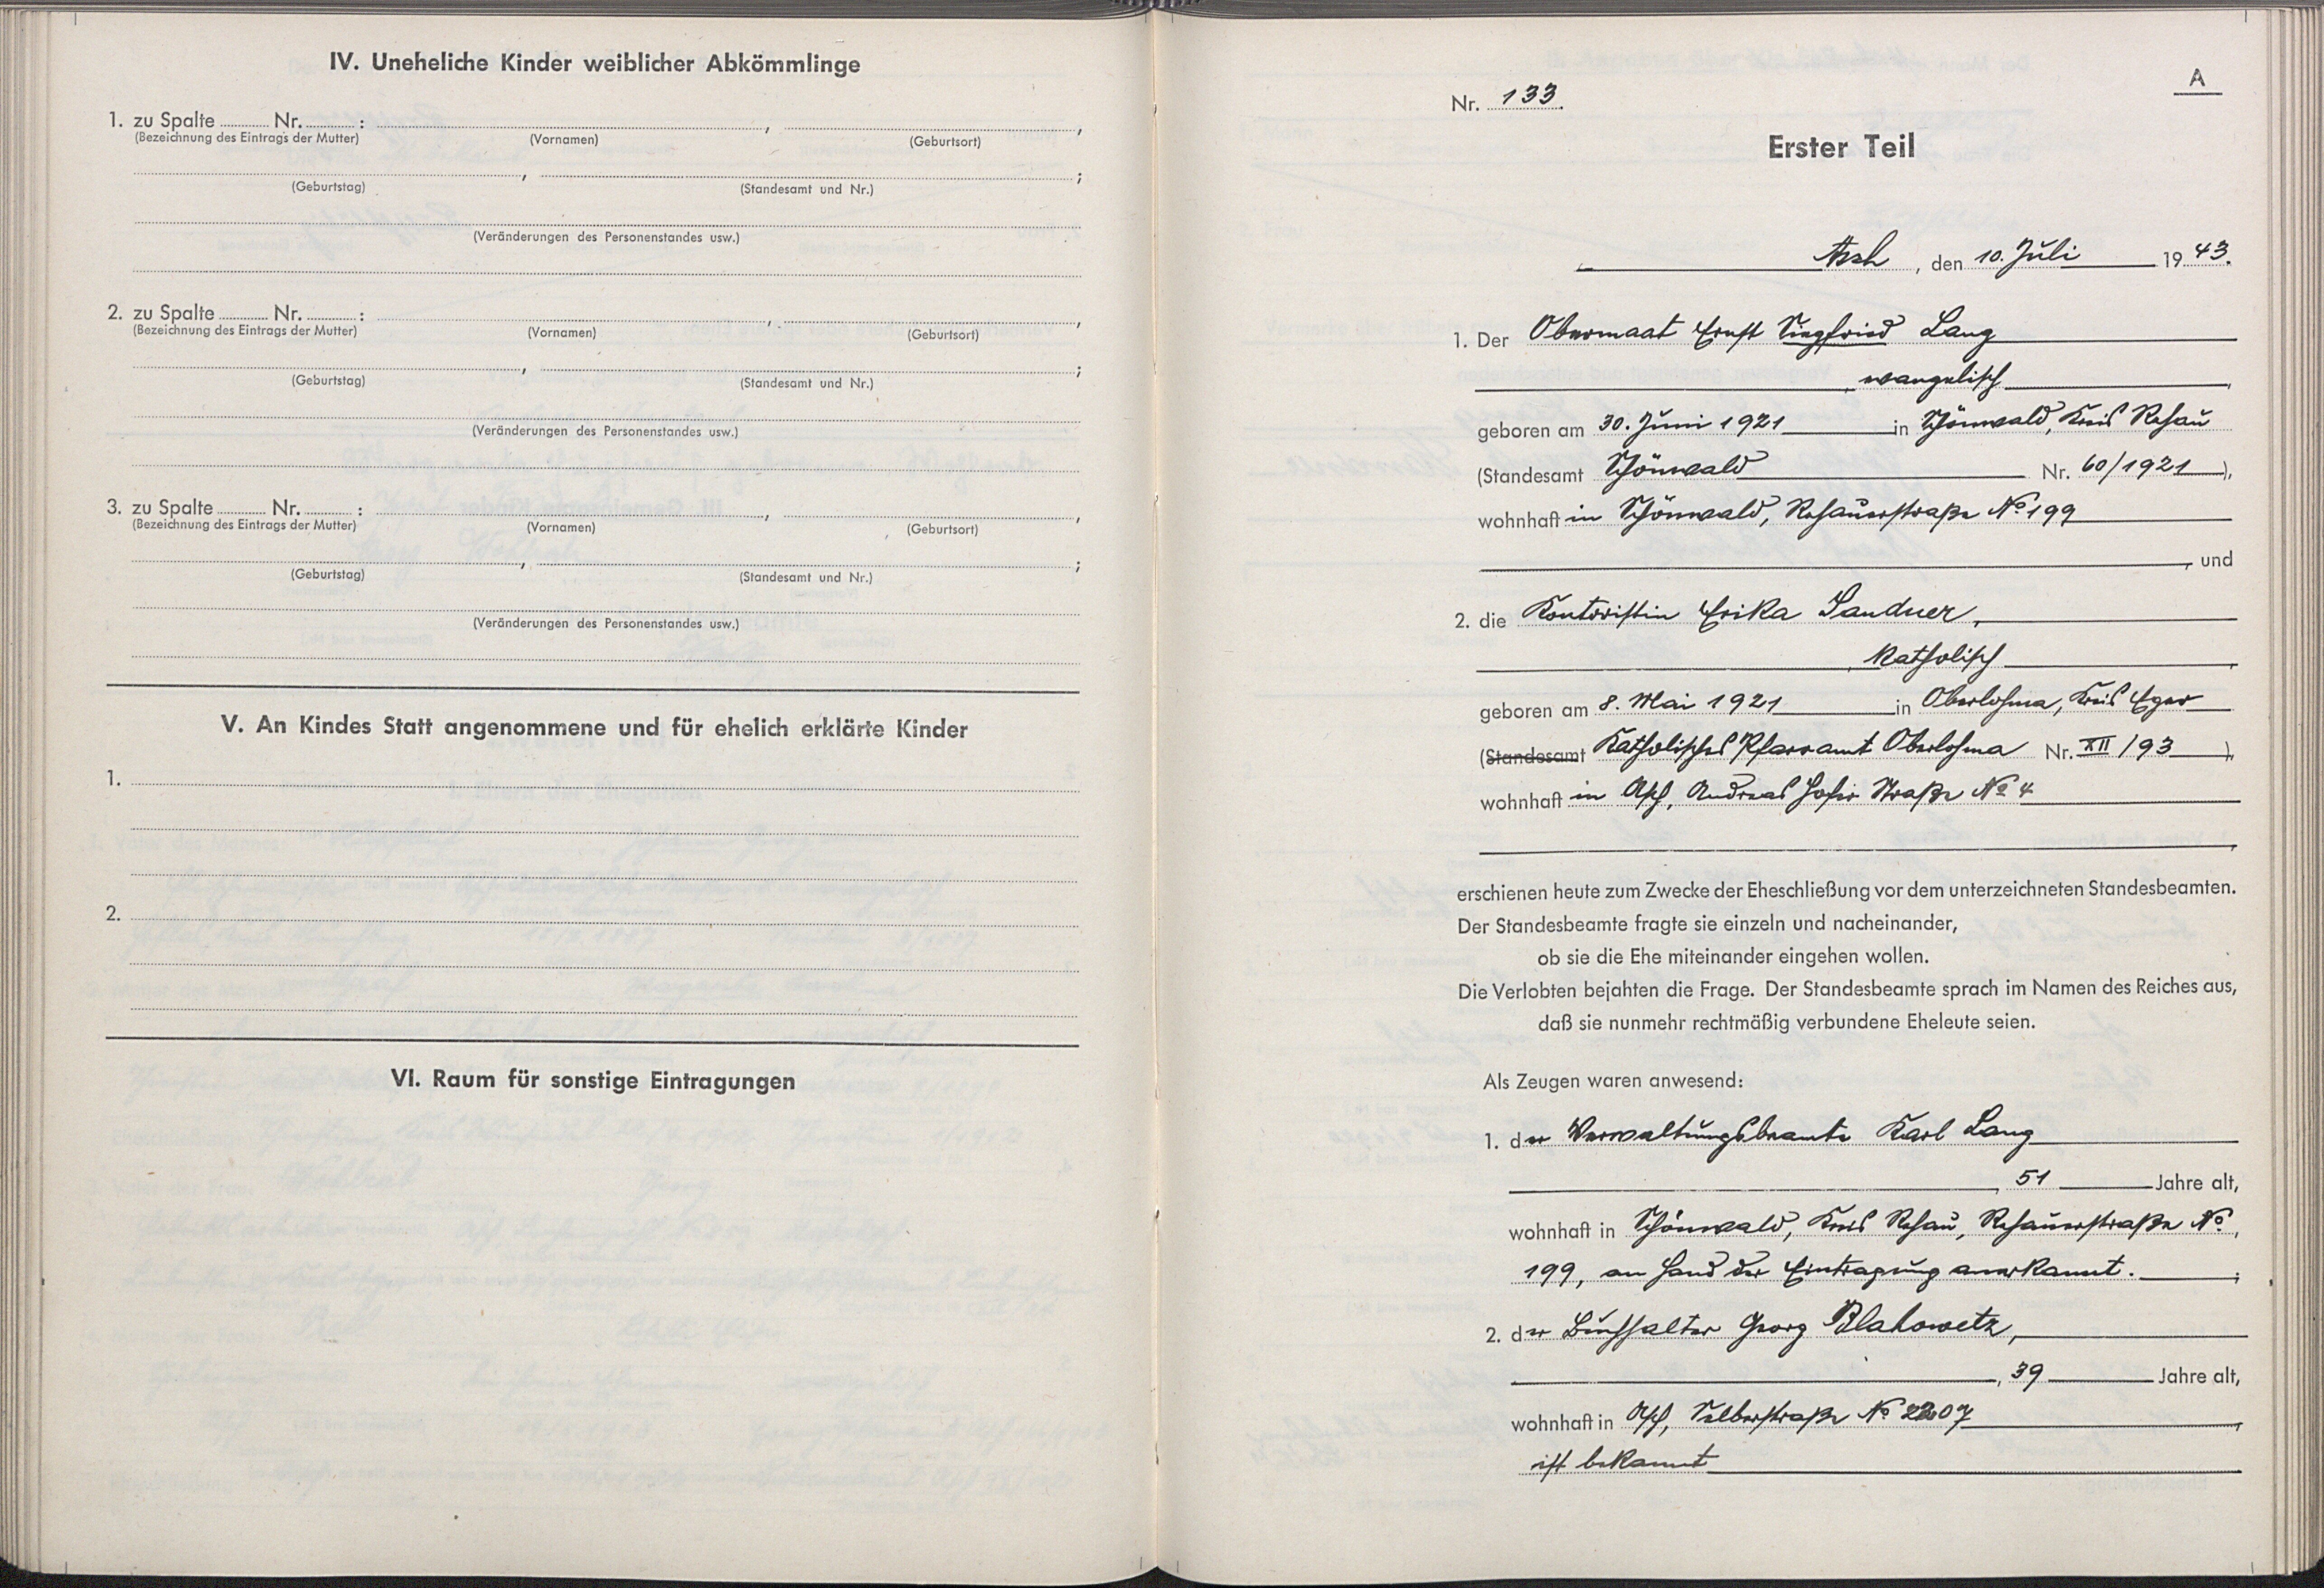 IV. Uneheliche Kinder weiblicher Abkömmlinge
1. zu Spalte ........ Nr. ........ : , ,
(Bezeichnung des Eintrags der Mutter) (Vornamen) (Geburtsort)
, ;
(Geburtstag) (Standesamt und Nr.)
(Veränderungen des Personenstandes usw.)
2. zu Spalte ........ Nr. ........ : , ,
(Bezeichnung des Eintrags der Mutter) (Vornamen) (Geburtsort)
, ;
(Geburtstag) (Standesamt und Nr.)
(Veränderungen des Personenstandes usw.)
3. zu Spalte ........ Nr. ........ : , ,
(Bezeichnung des Eintrags der Mutter) (Vornamen) (Geburtsort)
, ;
(Geburtstag) (Standesamt und Nr.)
(Veränderungen des Personenstandes usw.)
V. An Kindes Statt angenommene und für ehelich erklärte Kinder
1.
2.
VI. Raum für sonstige Eintragungen
A
Nr. 133.
Erster Teil
Asch, den 10. Juli 1943.
1. Der Obermaat Ernst Siegfried Lang
, evangelisch,
geboren am 30. Juni 1921 in Schönwald, Kreis Rehau
(Standesamt Schönwald Nr. 60/1921),
wohnhaft in Schönwald, Rehauerstraße No 199
, und
2. die Kontoristin Erika Sandner,
, katholisch,
geboren am 8. Mai 1921 in Oberlohma, Kreis Eger
(Standesamt Katholisches Pfarramt Oberlohma Nr. XII/93),
wohnhaft in Asch, Andreas Hofer Straße No 4
,
erschienen heute zum Zwecke der Eheschließung vor dem unterzeichneten Standesbeamten.
Der Standesbeamte fragte sie einzeln und nacheinander,
ob sie die Ehe miteinander eingehen wollen.
Die Verlobten bejahten die Frage. Der Standesbeamte sprach im Namen des Reiches aus,
daß sie nunmehr rechtmäßig verbundene Eheleute seien.
Als Zeugen waren anwesend:
1. der Verwaltungsbeamte Karl Lang
, 51 Jahre alt,
wohnhaft in Schönwald, Kreis Rehau, Rehauerstraße No,
199, an Hand der Eintragung anerkannt. ;
2. der Buchhalter Georg Blahowetz,
, 39 Jahre alt,
wohnhaft in Asch, Selberstraße No 2207,
ist bekannt